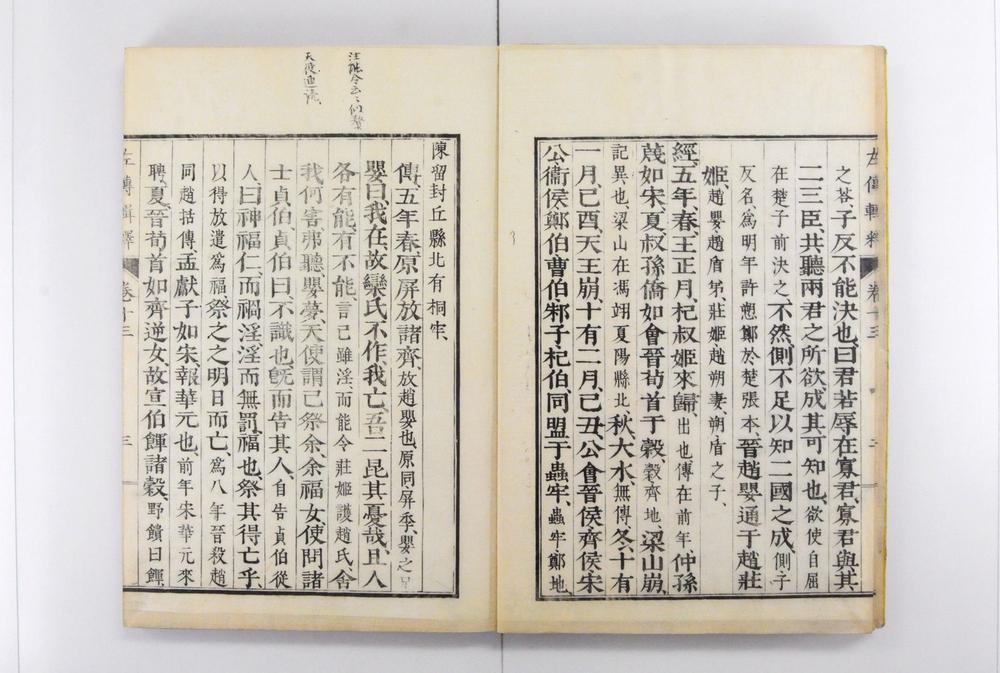 之荅、子反不能決也、曰君若辱在寡君、寡君與其
二三臣、共聽兩君之所欲、成其可知也、欲使自屈
在楚子前決之、不然、側不足以知二國之成、側子
反名、爲明年許愬鄭於楚張本、晉趙嬰通于趙莊
姬、趙嬰、趙盾弟、莊姬、趙朔妻、朔、盾之子、
經、五年、春、王正月、杞叔姬來歸、出也、傳在前年、仲孫
蔑如宋、夏、叔孫僑如會晉荀首于穀、穀、齊地、梁山崩、
記異也、梁山在馮翊夏陽縣北、秋、大水、無傳、冬、十有
一月、己酉、天王崩、十有二月、己丑、公會晉侯、齊侯、宋
公、衞侯、鄭伯、曹伯、邾子、杞伯、同盟于蟲牢、蟲牢、鄭地、
左傳輯釋 卷十三
陳留封丘縣北有桐牢、
傳、五年春、原屏放諸齊、放趙嬰也、原同、屏季、嬰之兄
嬰曰、我在、故欒氏不作、我亡、吾二昆其憂哉、且人
各有能、有不能、言己雖淫、而能令莊姬護趙氏、舍
我何害、弗聽、嬰夢、天使謂己、祭余、余福女、使問諸
士貞伯、貞伯曰、不識也、旣而告其人、自告貞伯從
人、曰、神福仁、而禍淫、淫而無罰、福也、祭其得亡乎、
以得放遣爲福、祭之之明日而亡、爲八年晉殺趙
同趙括傳、孟獻子如宋、報華元也、前年宋華元來
聘、夏、晉荀首如齊逆女、故宣伯餫諸穀、野饋曰餫、
左傳輯釋 卷十三 三